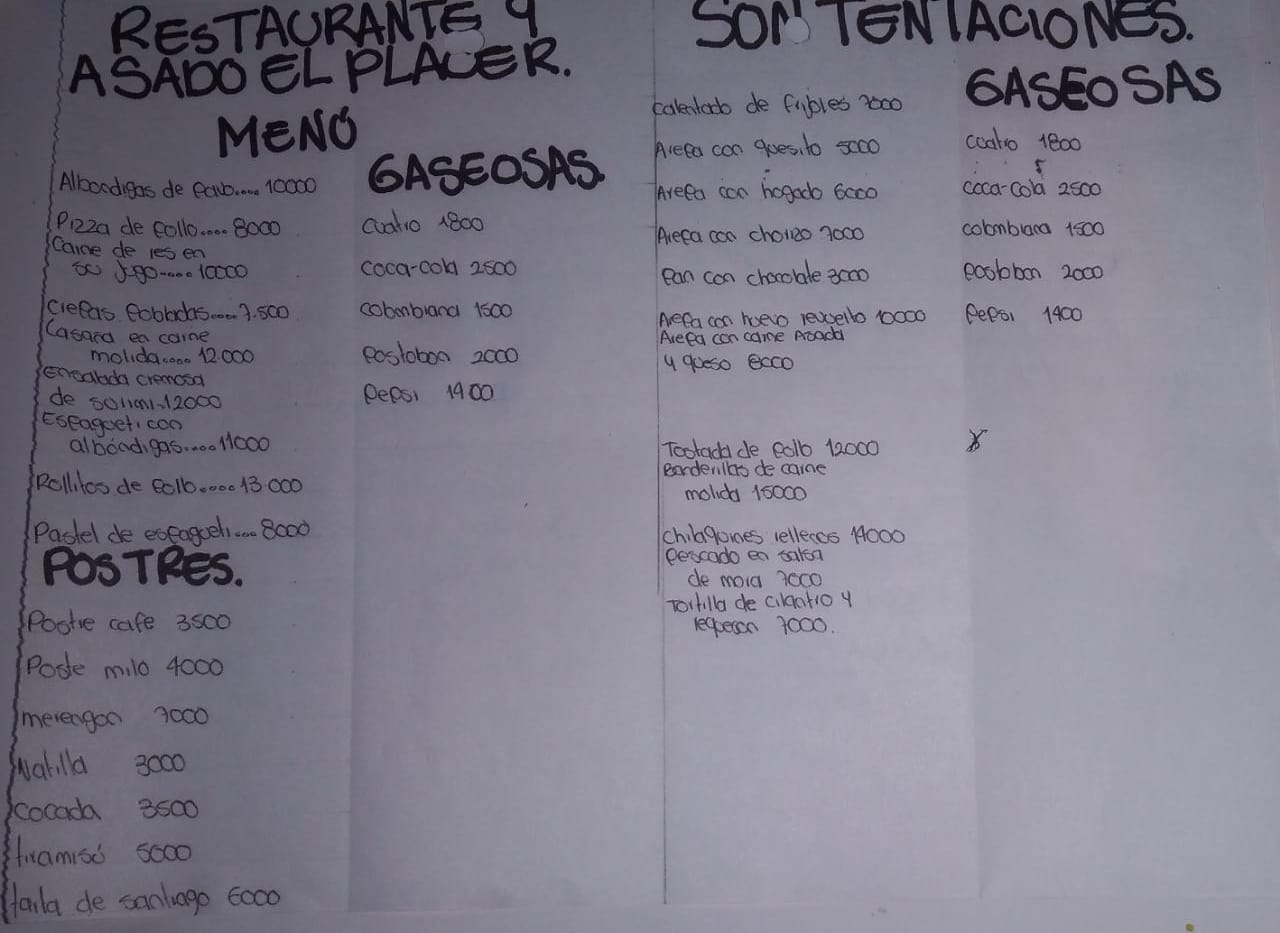 RESTAURANTE Y
ASADO EL PLACER.
MENÚ
Albondigas de pavo.... 10000
Pizza de pollo.... 8000
Carne de res en
su jugo.... 10000
Crepas pobladas.... 7.500
Lasaña en carne
molida.... 12.000
Ensalada cremosa
de surimi.12000
Espagueti con
albóndigas.... 11000
Rollitos de pollo.... 13.000
Pastel de espagueti... 8000
POSTRES.
Postre cafe 3500
Poste milo 4000
merengon 7000
Natilla 3000
Cocada 3500
tiramisú 5000
tarta de santiago 6000
GASEOSAS.
Cuatro 1800
coca-cola 2500
colombiana 1500
Postobon 2000
Pepsi 1400
SON TENTACIONES.
Calentado de frijoles 7000
Arepa con quesito 5000
Arepa con hogado 6000
Arepa con chorizo 7000
Pan con chocolate 3000
Arepa con huevo revuelto 10000
Arepa con carne Asada
y queso 8000
Tostada de pollo 12000
Banderillas de carne
molida 15000
chilaquines rellenos 14000
Pescado en salsa
de mora 7000
Tortilla de cilantro y
requeson 7000.
GASEOSAS
Cuatro 1800
coca-cola 2500
colombiana 1500
Postobon 2000
Pepsi 1400